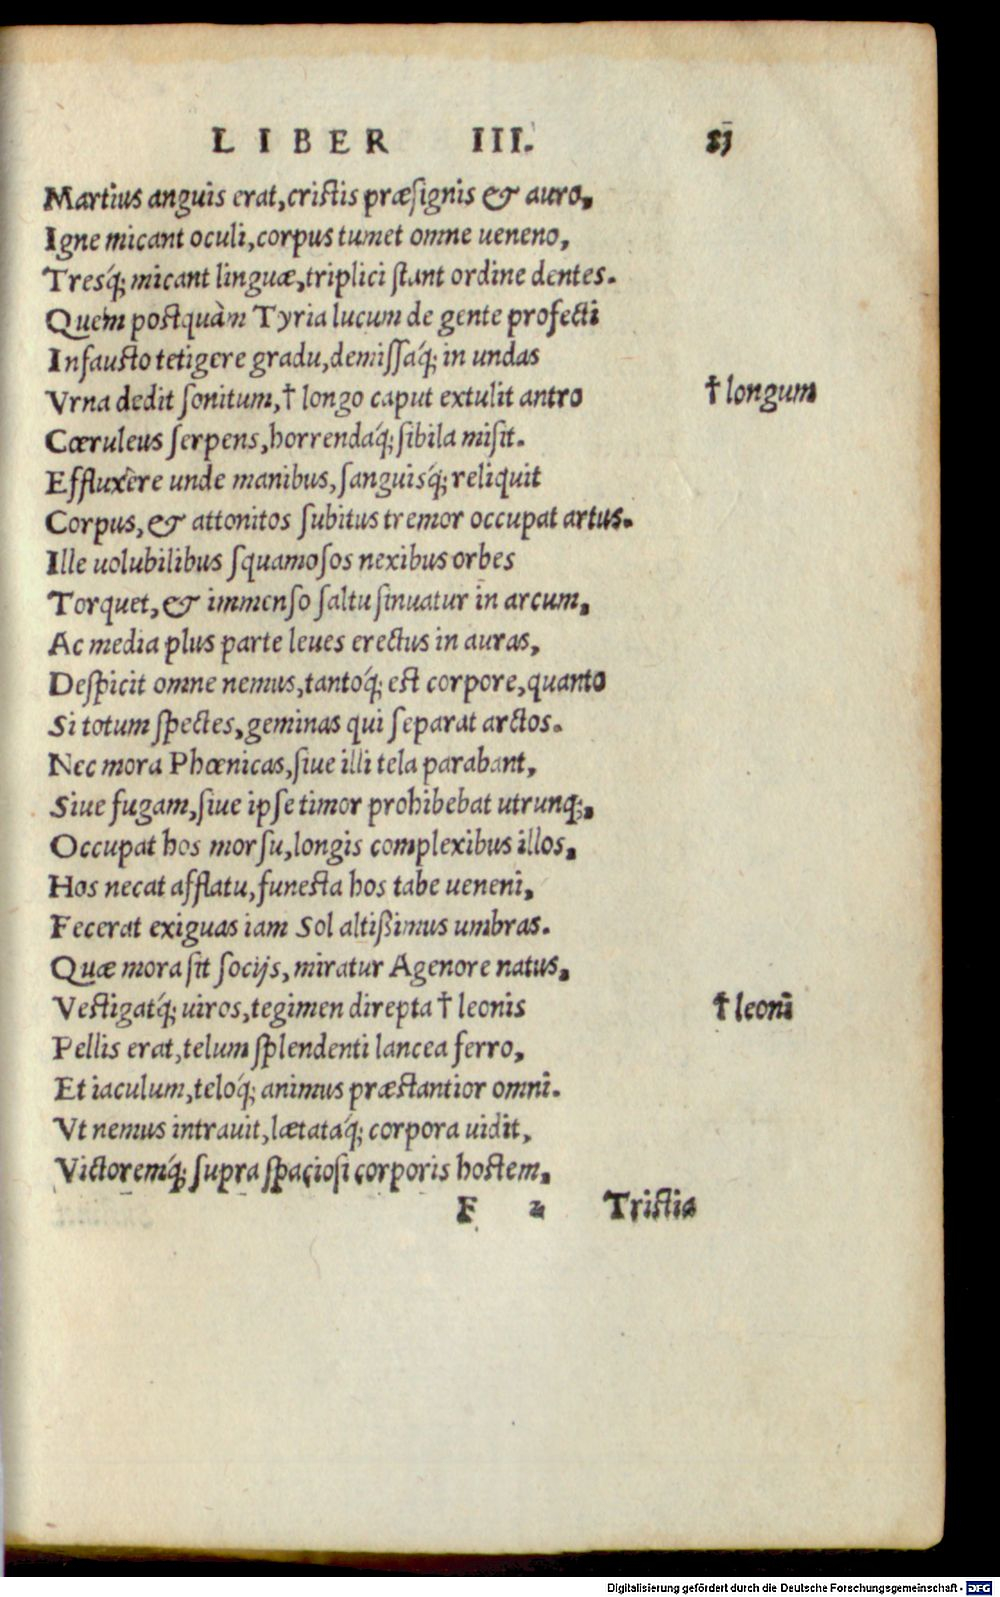 LIBER III. 51
Martius anguis erat, cristis præsignis & auro,
Igne micant oculi, corpus tumet omne ueneno,
Tresq́; micant linguæ, triplici stant ordine dentes.
Quem postquàm Tyria lucum de gente profecti
Infausto tetigere gradu, demissaq́; in undas
Vrna dedit sonitum, † longo caput extulit antro † longum
Cœruleus serpens, horrendaq́; sibila misit.
Effluxêre unde manibus, sanguisq́; reliquit
Corpus, & attonitos subitus tremor occupat artus.
Ille uolubilibus squamosos nexibus orbes
Torquet, & immenso saltu sinuatur in arcum,
Ac media plus parte leues erectus in auras,
Despicit omne nemus, tantoq́; est corpore, quanto
Si totum spectes, geminas qui separat arctos.
Nec mora Phœnicas, siue illi tela parabant,
Siue fugam, siue ipse timor prohibebat utrunq;,
Occupat hos morsu, longis complexibus illos,
Hos necat afflatu, funesta hos tabe ueneni,
Fecerat exiguas iam Sol altißimus umbras.
Quæ mora sit socijs, miratur Agenore natus,
Vestigatq́; uiros, tegimen direpta † leonis † leoni
Pellis erat, telum splendenti lancea ferro,
Et iaculum, teloq́; animus præstantior omni.
Vt nemus intrauit, lætataq́; corpora uidit,
Victoremq́; supra spaciosi corporis hostem,
F 2 Tristia
Digitalisierung gefördert durch die Deutsche Forschungsgemeinschaft - DFG